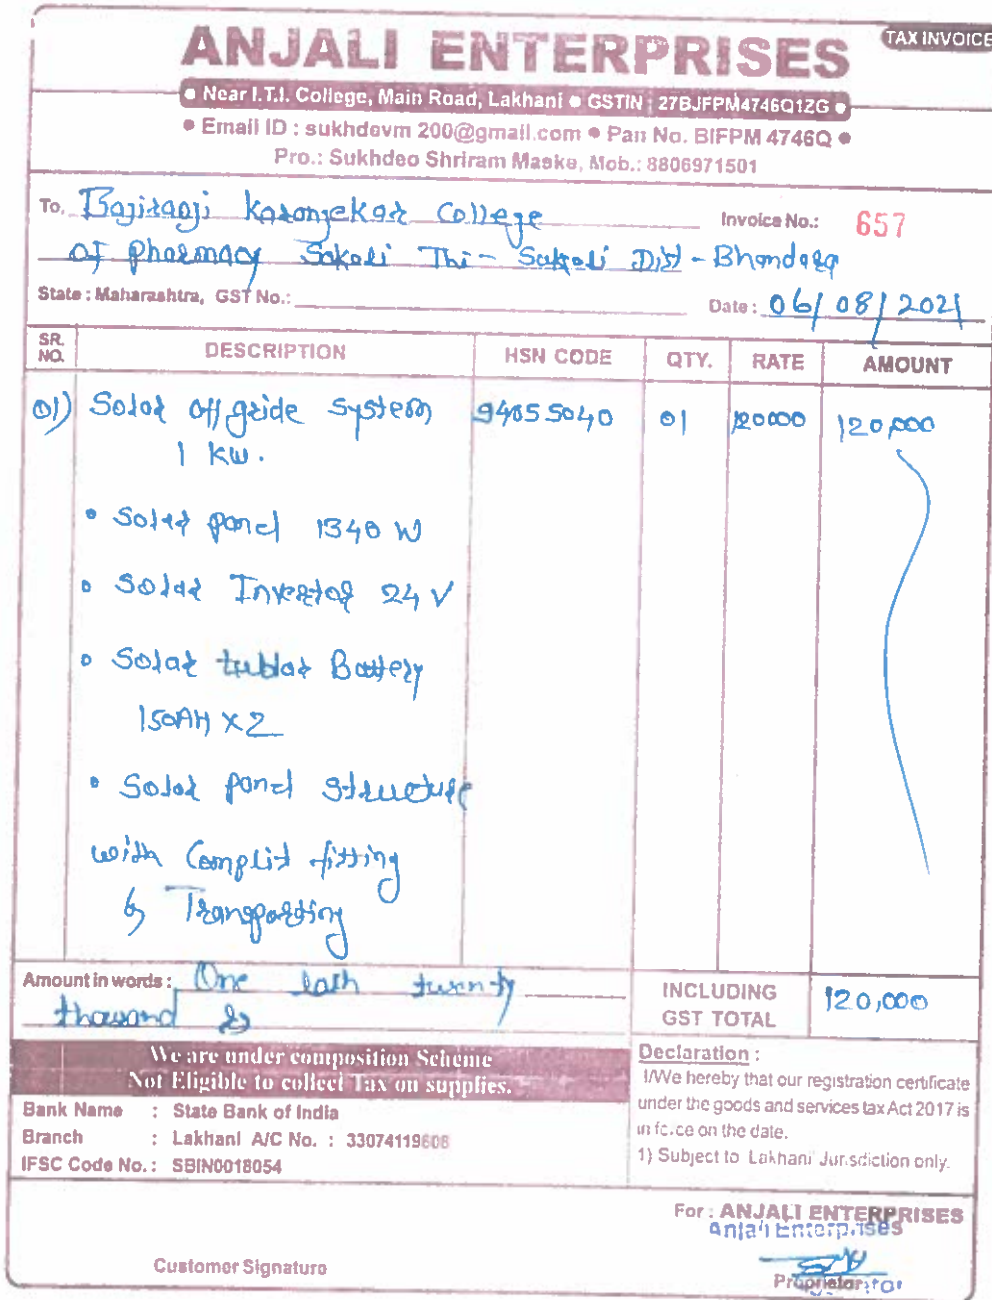 TAX INVOICE
ANJALI ENTERPRISES
• Near I.T.I. College, Main Road, Lakhani • GSTIN : 27BJFPM4746Q1ZG •
• Email ID : sukhdevm 200@gmail.com • Pan No. BIFPM 4746Q •
Pro.: Sukhdeo Shriram Maske, Mob.: 8806971501
To, Bajiraoji Karanjekar College Invoice No.: 657
of pharmacy Sakoli Thi - Sakoli Dist - Bhandara
State : Maharashtra, GST No.: Date : 06/08/2021
SR. NO. DESCRIPTION HSN CODE QTY. RATE AMOUNT
01) Solar off gride system 94055040 01 120000 120,000
1 KW.
• Solar panel 1340 W
• Solar Inverter 24 V
• Solar tublar Battery
150AH X 2
• Solar panel structure
with Complit fitting
& Transporting
Amount in words : One lakh twenty
thousand rs
INCLUDING GST TOTAL 120,000
We are under composition Scheme
Not Eligible to collect Tax on supplies.
Bank Name : State Bank of India
Branch : Lakhani A/C No. : 33074119608
IFSC Code No. : SBIN0018054
Declaration :
I/We hereby that our registration certificate
under the goods and services tax Act 2017 is
in force on the date.
1) Subject to Lakhani Jurisdiction only.
For : ANJALI ENTERPRISES
Anjali Enterprises
Customer Signature
Proprietor